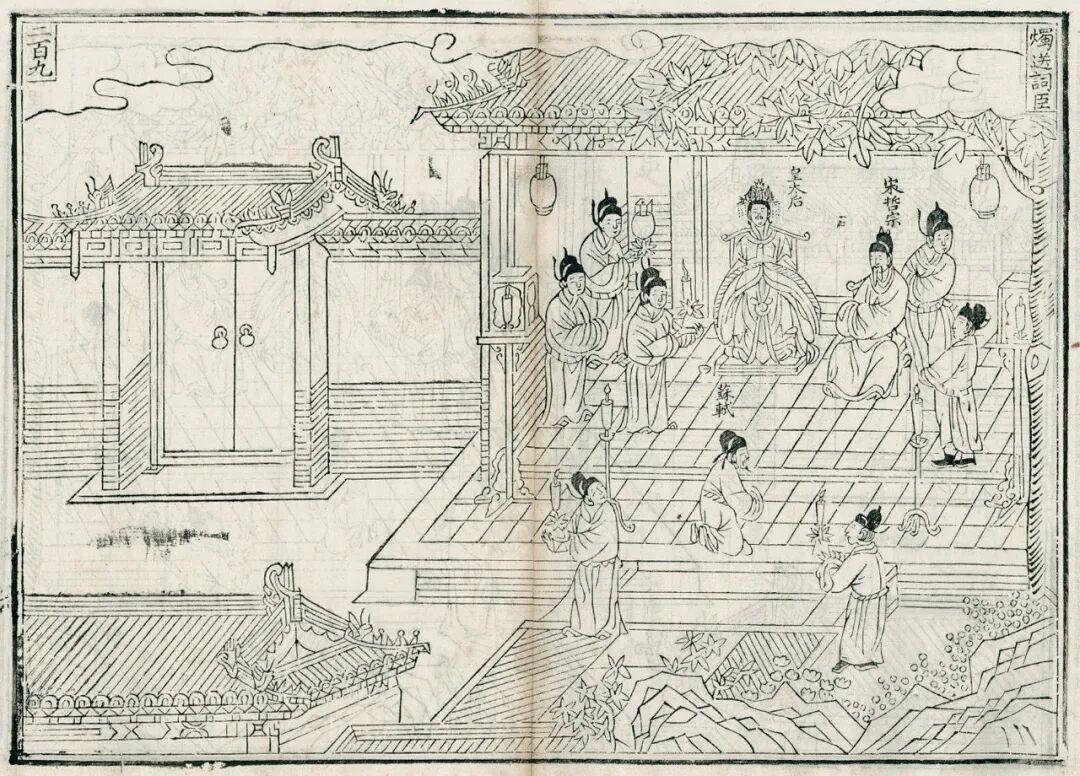 燭送詞臣
宋哲宗
皇太后
蘇軾
二百九